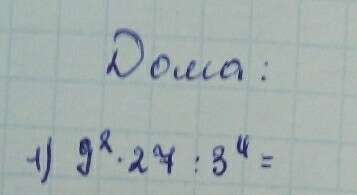 Дома:
1) 9²·27:3⁴=